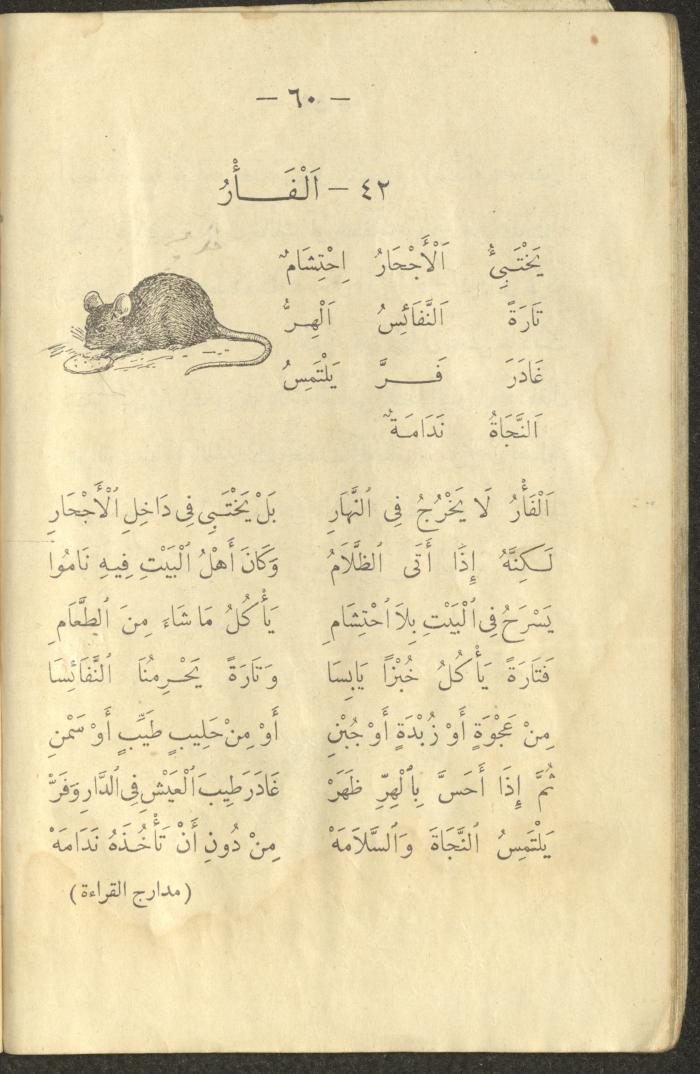 — ٦٠ —
٤٢ — اَلْفَـــأْرُ
يَخْتَبِئُ اَلْأَجْحَارُ اِحْتِشَامٌ
تَارَةً اَلنَّفَائِسُ اَلْهِــرُّ
غَادَرَ فَـــرَّ يَلْتَمِسُ
اَلنَّجَاةُ نَدَامَـةٌ
اَلْفَأْرُ لَا يَخْرُجُ فِى ٱلنَّهَارِ بَلْ يَخْتَبِى فِى دَاخِلِ ٱلْأَجْحَارِ
لَـكِنَّهُ إِذَا أَتَى ٱلظَّلَامُ وَكَانَ أَهْلُ ٱلْبَيْتِ فِيهِ نَامُوا
يَسْرَحُ فِى ٱلْبَيْتِ بِلَا ٱحْتِشَامِ يَأْكُلُ مَا شَاءَ مِنَ ٱلطَّعَامِ
فَتَارَةً يَأْكُلُ خُبْزًا يَابِسَا وَتَارَةً يَحْـرِمُنَا ٱلنَّفَائِسَا
مِنْ عَجْوَةٍ أَوْ زُبْدَةٍ أَوْ جُبْنِ أَوْ مِنْ حَلِيبٍ طَيِّبٍ أَوْ سَمْنِ
ثُمَّ إِذَا أَحَسَّ بِٱلْهِرِّ ظَهَرْ غَادَرَ طِيبَ ٱلْعَيْشِ فِى ٱلدَّارِ وَفَرَّ
يَلْتَمِسُ ٱلنَّجَاةَ وَٱلسَّلَامَهْ مِنْ دُونِ أَنْ تَأْخُذَهُ نَدَامَهْ
(مدارج القراءة)